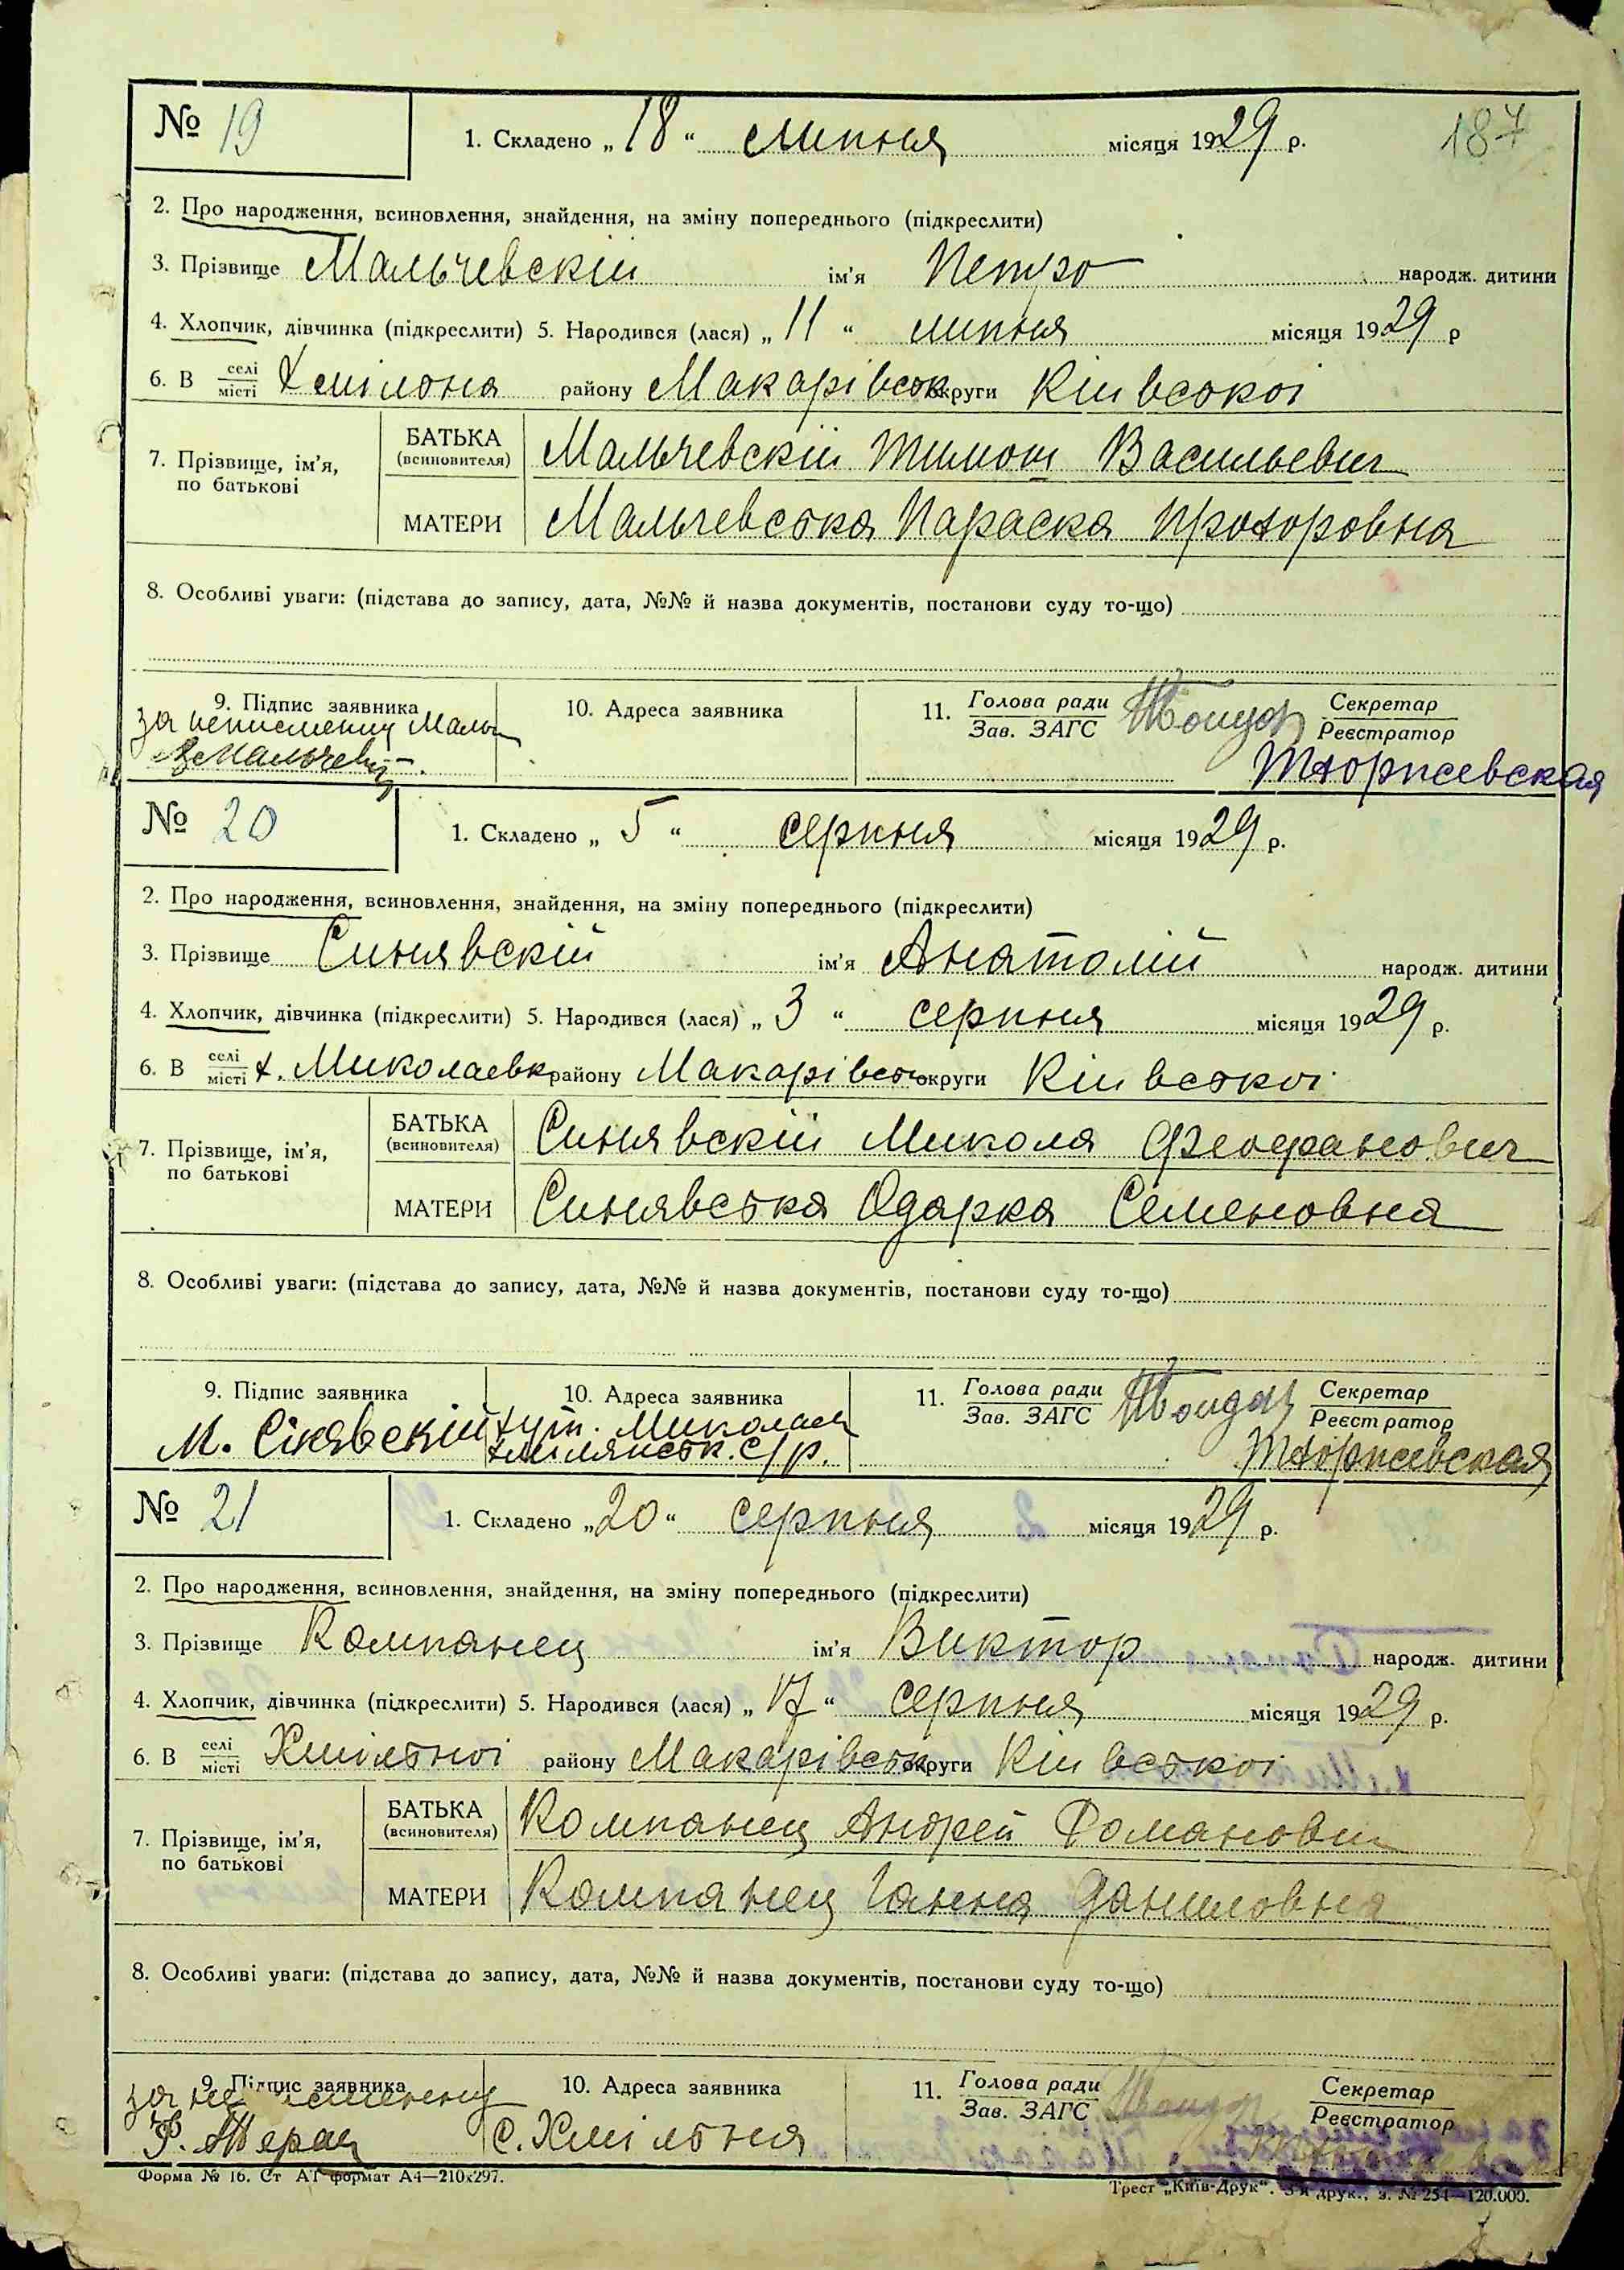 № 19
1. Складено „18“ липня місяця 1929 р.
187
2. Про народження, всиновлення, знайдення, на зміну попереднього (підкреслити)
3. Прізвище Мальчевскій ім'я Петро народж. дитини
4. Хлопчик, дівчинка (підкреслити) 5. Народився (лася) „11“ липня місяця 1929 р
6. В селі місті району Макарівськ округи Київської
7. Прізвище, ім'я, по батькові
БАТЬКА (всиновителя) Мальчевскій Тимош Васильевич
МАТЕРИ Мальчевська Параска Прохоровна
8. Особливі уваги: (підстава до запису, дата, №№ й назва документів, постанови суду то-що)
9. Підпис заявника
10. Адреса заявника
11. Голова ради Зав. ЗАГС
Секретар Реєстратор
за неписменну
№ 20
1. Складено „5“ серпня місяця 1929 р.
2. Про народження, всиновлення, знайдення, на зміну попереднього (підкреслити)
3. Прізвище Синявскій ім'я Анатолій народж. дитини
4. Хлопчик, дівчинка (підкреслити) 5. Народився (лася) „3“ серпня місяця 1929 р.
6. В селі місті х. Миколаевк району Макарівськ округи Київської
7. Прізвище, ім'я, по батькові
БАТЬКА (всиновителя) Синявскій Микола Феофанович
МАТЕРИ Синявська Одарка Семеновна
8. Особливі уваги: (підстава до запису, дата, №№ й назва документів, постанови суду то-що)
9. Підпис заявника
10. Адреса заявника
11. Голова ради Зав. ЗАГС
Секретар Реєстратор
М. Сінявскій
хут. Миколаев
с/р.
№ 21
1. Складено „20“ серпня місяця 1929 р.
2. Про народження, всиновлення, знайдення, на зміну попереднього (підкреслити)
3. Прізвище Компанец ім'я Виктор народж. дитини
4. Хлопчик, дівчинка (підкреслити) 5. Народився (лася) „17“ серпня місяця 1929 р.
6. В селі місті району Макарівськ округи Київської
7. Прізвище, ім'я, по батькові
БАТЬКА (всиновителя) Компанец Андрей Романович
МАТЕРИ Компанец Ганна Даниловна
8. Особливі уваги: (підстава до запису, дата, №№ й назва документів, постанови суду то-що)
9. Підпис заявника
10. Адреса заявника
11. Голова ради Зав. ЗАГС
Секретар Реєстратор
с. Хмільна
Форма № 16. Ст АТ формат А4—210х297.
Трест „Київ-Друк“. 3-я друк., з. № 251—120.000.